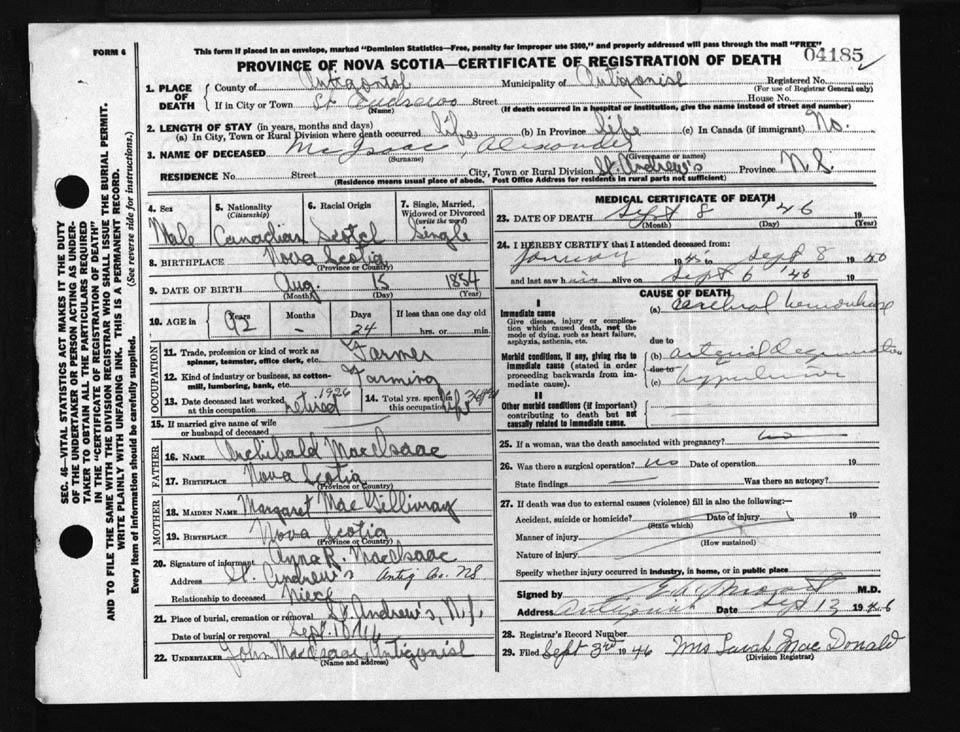 FORM 6
This form if placed in an envelope, marked "Dominion Statistics—Free, penalty for improper use $300," and properly addressed will pass through the mail "FREE"
04185
PROVINCE OF NOVA SCOTIA—CERTIFICATE OF REGISTRATION OF DEATH
1. PLACE OF DEATH
County of Antigonish Municipality of Antigonish Registered No.
(For use of Registrar General only)
If in City or Town St Andrews Street House No.
(Name) (If death occurred in a hospital or institution, give the name instead of street and number)
2. LENGTH OF STAY (in years, months and days)
(a) In City, Town or Rural Division where death occurred life (b) In Province Life (c) In Canada (if immigrant) No.
3. NAME OF DECEASED McIsaac, Alexander
(Surname) (Given name or names)
RESIDENCE No. Street City, Town or Rural Division St. Andrew's Province N.S.
(Residence means usual place of abode. Post Office Address for residents in rural parts not sufficient)
SEC. 46—VITAL STATISTICS ACT MAKES IT THE DUTY
OF THE UNDERTAKER OR PERSON ACTING AS UNDER-
TAKER TO OBTAIN ALL THE PARTICULARS REQUIRED
IN THE "CERTIFICATE OF REGISTRATION OF DEATH"
AND TO FILE THE SAME WITH THE DIVISION REGISTRAR WHO SHALL ISSUE THE BURIAL PERMIT.
WRITE PLAINLY WITH UNFADING INK. THIS IS A PERMANENT RECORD.
Every item of Information should be carefully supplied. (See reverse side for instructions.)
4. Sex 5. Nationality (Citizenship) 6. Racial Origin 7. Single, Married, Widowed or Divorced (write the word)
Male Canadian Scotch Single
8. BIRTHPLACE Nova Scotia
(Province or Country)
9. DATE OF BIRTH Aug. 15 1854
(Month) (Day) (Year)
10. AGE in Years Months Days If less than one day old
92 - 24 hrs. or min.
OCCUPATION
11. Trade, profession or kind of work as spinner, teamster, office clerk, etc. Farmer
12. Kind of industry or business, as cotton-mill, lumbering, bank, etc. Farming
13. Date deceased last worked at this occupation retired 1926
14. Total yrs. spent in this occupation
15. If married give name of wife or husband of deceased
FATHER
16. NAME Archibald MacIsaac
17. BIRTHPLACE Nova Scotia
(Province or Country)
MOTHER
18. MAIDEN NAME Margaret MacGillivray
19. BIRTHPLACE Nova Scotia
(Province or Country)
20. Signature of informant Anna R. MacIsaac
Address St. Andrew's Antig Co. N.S.
Relationship to deceased Niece
21. Place of burial, cremation or removal St. Andrew's, N.S.
Date of burial or removal Sept. 10
22. UNDERTAKER John MacIsaac, Antigonish
(Name and address)
MEDICAL CERTIFICATE OF DEATH
23. DATE OF DEATH Sept 8 '46 19
(Month) (Day) (Year)
24. I HEREBY CERTIFY that I attended deceased from:
January 19 to Sept 8 19
and last saw h alive on Sept 6 '46 19
CAUSE OF DEATH
I
Immediate cause
Give disease, injury or complication which caused death, not the mode of dying, such as heart failure, asphyxia, asthenia, etc.
(a) Cerebral hemorrhage
due to
Morbid conditions, if any, giving rise to immediate cause (stated in order proceeding backwards from immediate cause).
(b) arterial Degeneration
due to
(c)
II
Other morbid conditions (if important) contributing to death but not causally related to immediate cause.
25. If a woman, was the death associated with pregnancy? no
26. Was there a surgical operation? no Date of operation 19
State findings Was there an autopsy?
27. If death was due to external causes (violence) fill in also the following:-
Accident, suicide or homicide? Date of injury 19
(State which)
Manner of injury
(How sustained)
Nature of injury
Specify whether injury occurred in industry, in home, or in public place
Signed by M.D.
Address Antigonish Date Sept 13 1946
28. Registrar's Record Number
29. Filed Sept 3rd 1946 Mrs Sarah MacDonald
(Division Registrar)